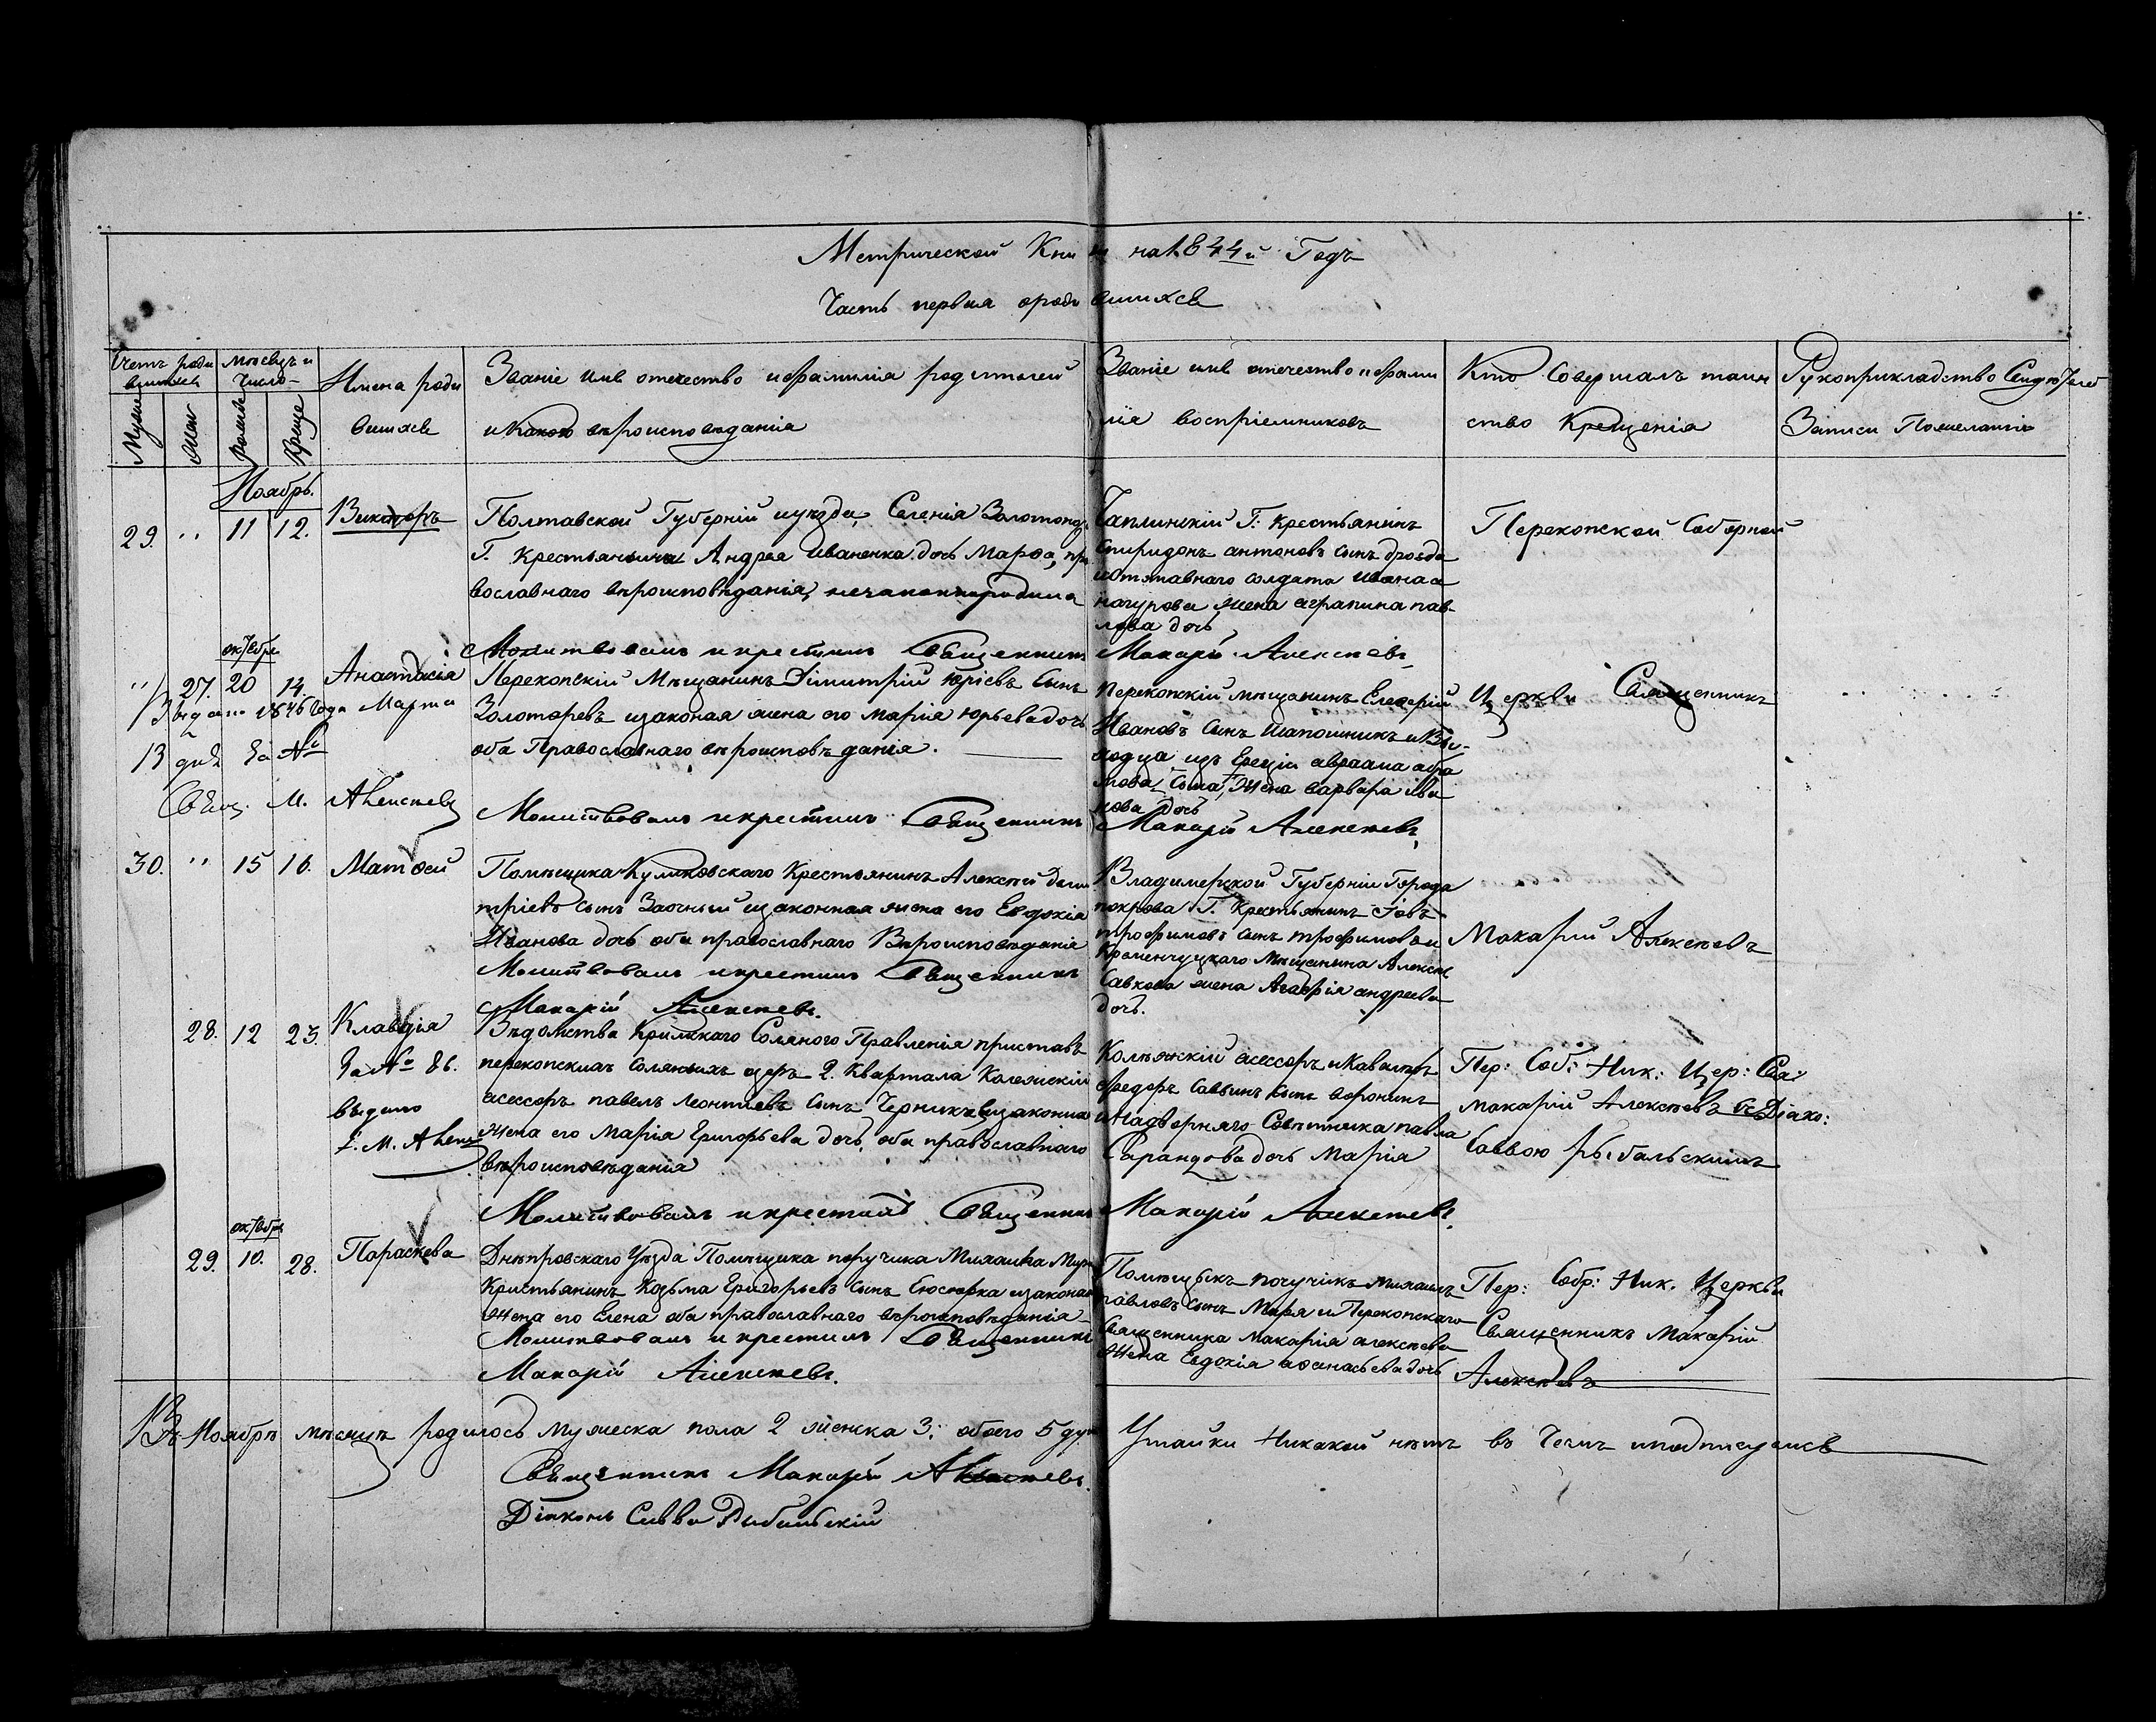 Метрической Книги на 1844й Годъ
Часть первая о родившихся
Счетъ родившихся
Мѣсяцъ и число
Имена родившихся
Званіе имя отечество и фамилія родителей
и какого вѣроисповѣданія
Званіе имя отечество и фамилія воспріемниковъ
Кто совершалъ таинство Крещенія
Рукоприкладство
Записи По желанію
Мужеска
Женска
Рожденія
Крещенія
Ноябрь.
29. " 11 12. Викторъ
Полтавской Губерніи и уѣзда, Селенія
Г. Крестьянина Андрея Иваненка дочь Марѳа, православнаго вѣроисповѣданія, незаконнородила
Чаплинскій Г: Крестьянинъ
Спиридонъ антоновъ сынъ дрозда
и отставнаго солдата Ивана
жена аграпина павлова дочь
Перекопской Соборной
Молитвовалъ и крестилъ Священникъ Макарій Алексѣевъ
октября
" 27. 20 14. Анастасія
Выдано 1846 года Марта
13 дня За №
Свящ. М. Алексѣевъ
Перекопскій Мѣщанинъ Димитрій Юрьевъ Сынъ
Золотаревъ и законая жена его Марія Юрьева дочь
оба Православнаго вѣроисповѣданія.
Перекопскій мѣщанинъ Елеѳерій
Ивановъ Сынъ Шапошникъ и Выходца изъ Греціи авраама абрамова сына, жена варвара иванова дочь
Церкви Священникъ
Молитвовалъ и крестилъ Священникъ Макарій Алексѣевъ
30. " 15 16. Матѳей
Помѣщика Куликовскаго Крестьянинъ Алексѣй димитріевъ сынъ Заочный и законная жена его Евдокія
Иванова дочь оба православнаго Вѣроисповѣданія
Молитвовалъ и крестилъ Священникъ
Макарій Алексѣевъ.
Владимерской Губерніи Города
покрова Г. Крестьянинъ Іовъ
трофимовъ сынъ трофимовъ и
Кременчуцкаго Мѣщанина Алексѣя
Савкова жена Агафія андреева
дочь.
Макарій Алексѣевъ
28. 12 23. Клавдія
За № 86.
выдано
С. М. Алекс
Вѣдомства Крымскаго Солянаго Правленія приставъ
перекопскихъ соляныхъ озеръ 2. Квартала Колежскій
асессоръ павелъ Леонтіевъ сынъ Черникъ, и законная
жена его Марія Григорьева дочь, оба православнаго
вѣроисповѣданія
Колѣжскій асессоръ и Кавалеръ
федоръ Саввинъ Сынъ воронинъ
и Надворняго Совѣтника павла
Сарандова дочь Марія
Пер: Соб: Ник: Цер: Свя:
макарій Алексѣевъ съ Діако:
Саввою Рыбальскимъ
Молитвовалъ и крестилъ Священникъ Макарій Алексѣевъ.
октября
29. 10. 28. Параскева
Днѣпровскаго Уѣзда Помѣщика поручика Михаила
Кристьянинъ Козьма Григорьевъ Сынъ и законая
жена его Елена оба православнаго вѣроисповѣданія
Молитвовалъ и крестилъ Священникъ
Макарій Алексѣевъ.
Помѣщикъ поручикъ михаилъ
павловъ сынъ и Перекопскаго
Священника Макарія алексѣева
жена Евдокія аѳанасьева дочь
Пер: Собр: Ник. Церкви
Священникъ Макарій
Алексѣевъ
Въ Ноябрѣ мѣсяцѣ родилось мужеска пола 2 женска 3: обоего 5 душ Утайки Никакой нѣтъ въ Чемъ и подписуемся
Священникъ Макарій Алексѣевъ.
Діаконъ Савва Рыбальскій